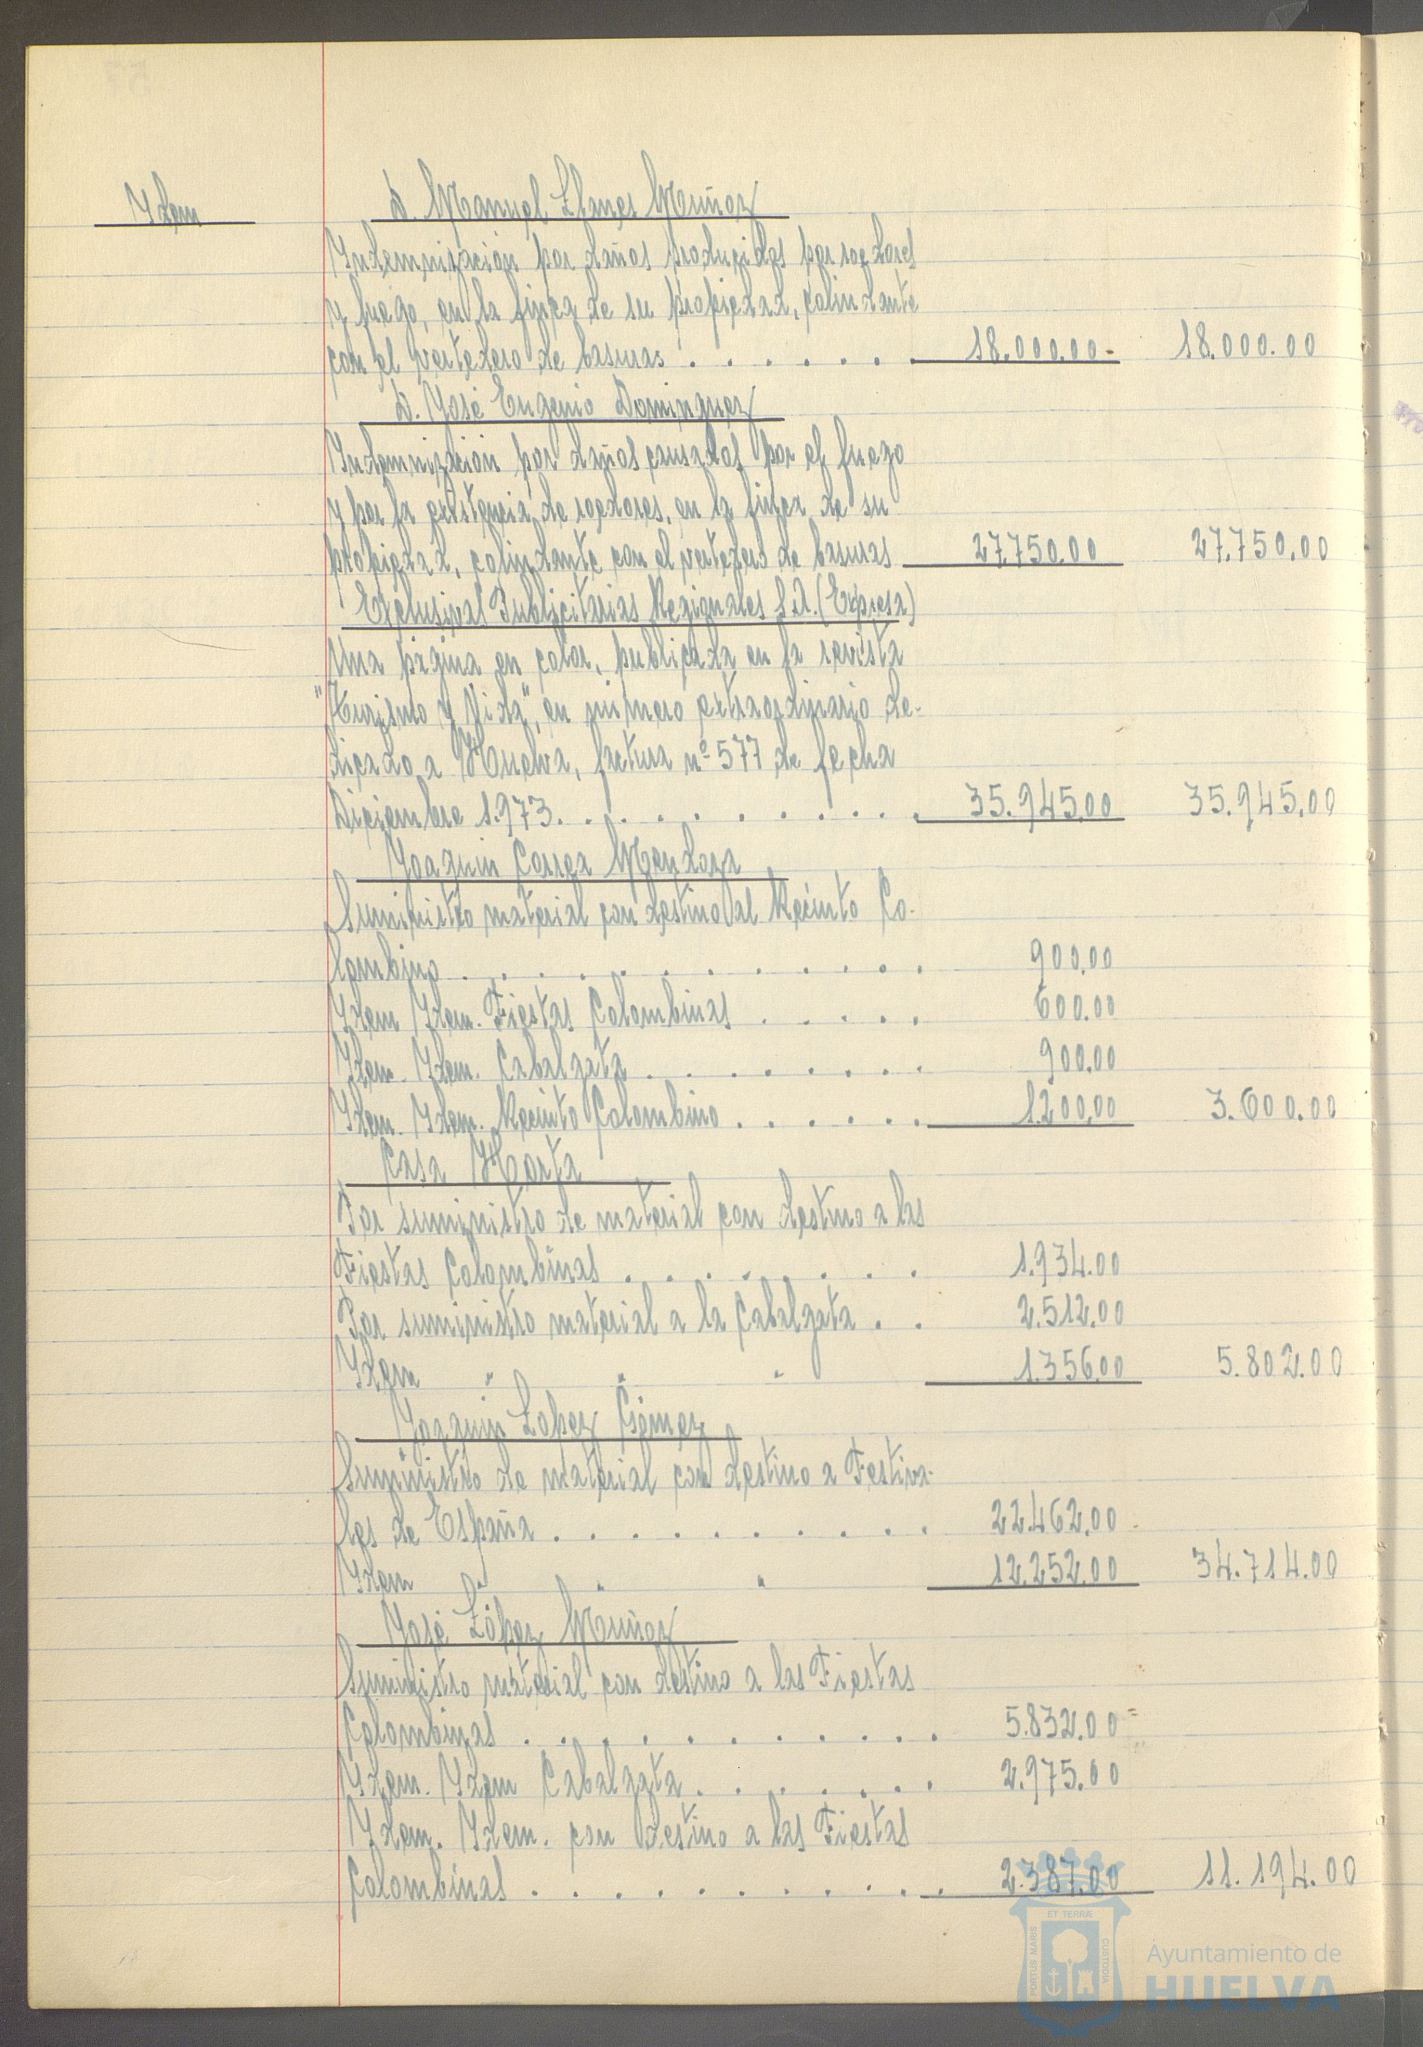 Ydem
D. Manuel Llanes Muñoz
Yndemnización por daños producidos por roedores
y fuego, en la finca de su propiedad, colindante
con el vertedero de basuras . . . . . . . 18.000.00- 18.000.00
D. José Eugenio Dominguez
Yndemnización por daños causados por el fuego
y por la existencia de roedores, en la finca de su
propiedad, colindante con el vertedero de basuras 27.750.00 27.750.00
Exclusivas Publicitarias Regionales S.A. (Expresa)
Una página en color, publicada en la revista
"Turismo y Vida", en número extraordinario de-
dicado a Huelva, factura nº 577 de fecha
Diciembre 1.973. . . . . . . . . . . 35.945.00 35.945.00
Joaquin Correa Mendoza
Suministro material con destino al Recinto Co-
lombino . . . . . . . . . . . . 900.00
Ydem Ydem. Fiestas Colombinas . . . . . 600.00
Ydem. Ydem. Cabalgata . . . . . . . . 900.00
Ydem. Ydem. Recinto Colombino . . . . . . 1.200.00 3.600.00
Casa Horta
Por suministro de material con destino a las
Fiestas Colombinas . . . . . . . . 1.934.00
Por suministro material a la Cabalgata . . 2.512.00
Ydem " " " 1.356.00 5.802.00
Joaquin Lopez Gómez
Suministro de material con destino a Festiva-
les de España . . . . . . . . . . 22.462.00
Ydem " " " 12.252.00 34.714.00
José López Muñoz
Suministro material con destino a las Fiestas
Colombinas . . . . . . . . . . . 5.832.00
Ydem. Ydem Cabalgata . . . . . . . 2.975.00
Ydem. Ydem. con destino a las Fiestas
Colombinas . . . . . . . . . . . 2.387.00 11.194.00
PORTUS MARIS ET TERRAE CUSTODIA
Ayuntamiento de
HUELVA